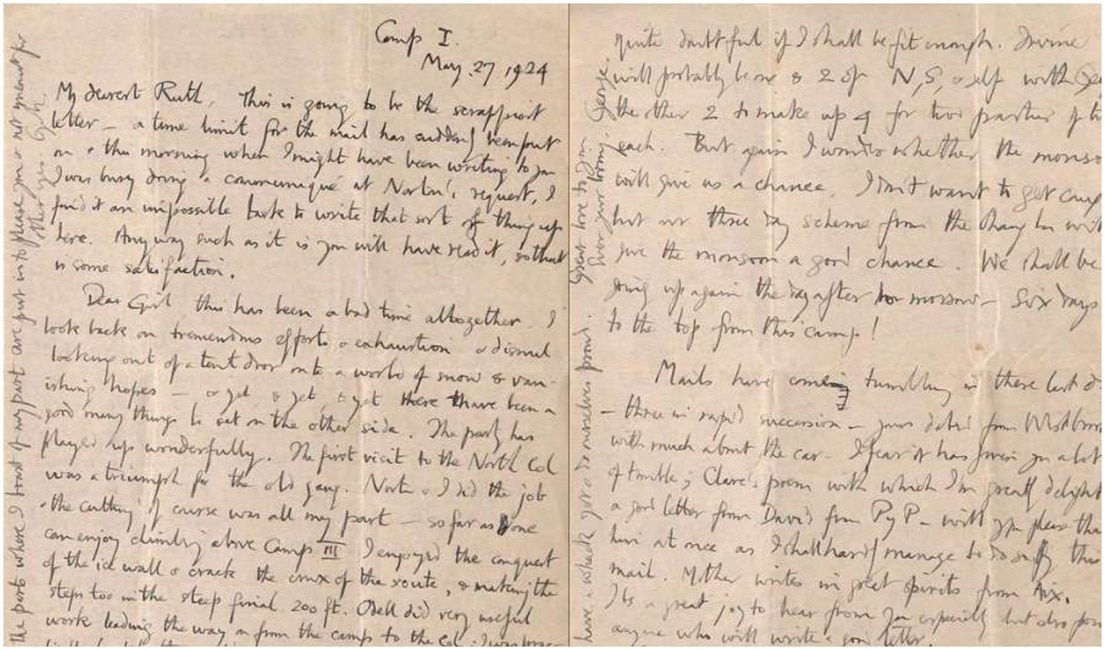 Camp I.
May 27 1924
My dearest Ruth, This is going to be the scrappiest
letter – a time limit for the mail has suddenly been put
on & this morning when I might have been writing to you
I was busy doing a communiqué at Norton's request, I
find it an impossible task to write that sort of thing up
here. Anyway such as it is you will have read it, so that
is some satisfaction.
Dear Girl this has been a bad time altogether – I
look back on tremendous efforts & exhaustion & dismal
looking out of a tent door onto a world of snow & van-
ishing hopes – & yet & yet, & yet there have been a
good many things to set on the other side. The party has
played up wonderfully. The first visit to the North Col
was a triumph for the old gang. Norton & I did the job
& the cutting of course was all my part – so far as one
can enjoy climbing above Camp III I enjoyed the conquest
of the ice wall & crack the crux of the route, & making the
steps too in the steep final 200 ft. Odell did very useful
work leading the way on from the camp to the Col; I was
the parts where I boast of my part are put in to please you & not meant for
other eyes G.M.
quite doubtful if I shall be fit enough. Irvine
will probably be one & 2 of N, S, & self with
the other 2 to make up 4 for two parties of
each. But again I wonder whether the
will give us a chance. I don't want to get
but our three day scheme from the Chang La
give the monsoon a good chance. We shall be
going up again the day after tomorrow – Six days
to the top from this camp!
Mails have coming tumbling in these last
– three in rapid succession – yours dated from
with much about the car – I fear it has given you a lot
of trouble; Clare's poem with which I'm greatly
a good letter from David from Py P – will you please
him at once as I shall hardly manage to do so by this
mail. Mother writes in great spirits from Aix.
Its a great joy to hear from you especially but also from
anyone who will write a good letter.
have a whack yet & do ourselves proud. Great love to you
Ever your loving George.